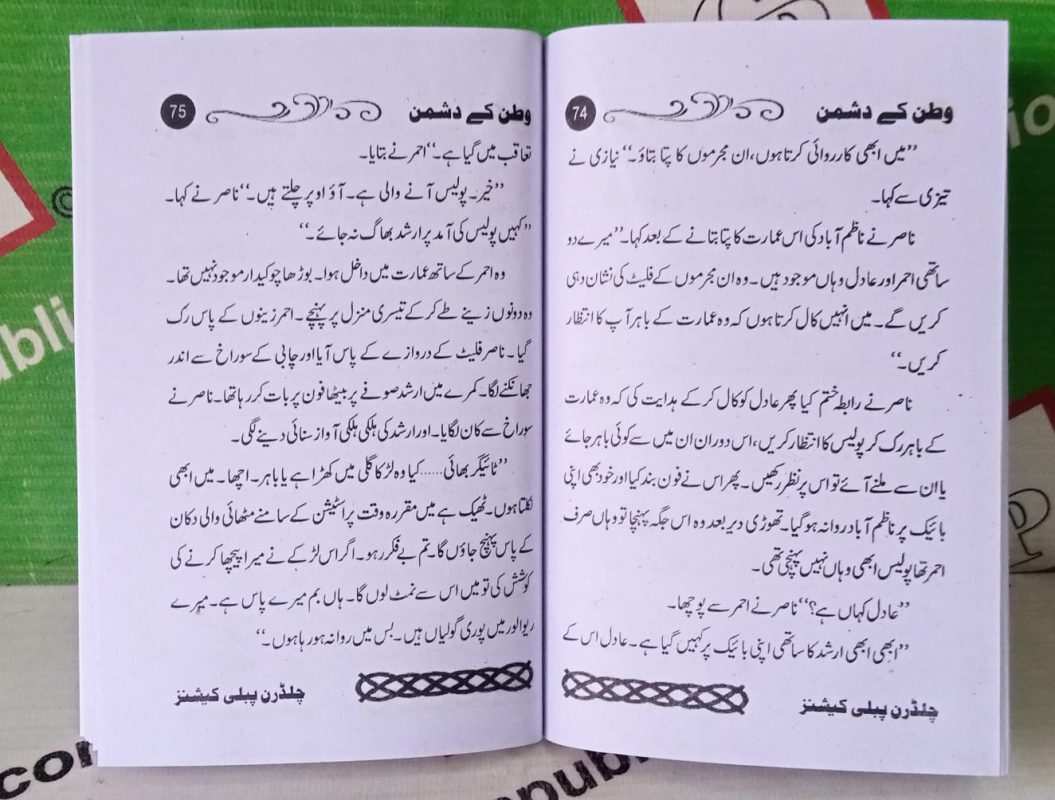 وطن کے دشمن 74
’’میں ابھی کارروائی کرتا ہوں، ان مجرموں کا پتا بتاؤ۔‘‘ نیازی نے
تیزی سے کہا۔
ناصر نے ناظم آباد کی اس عمارت کا پتا بتانے کے بعد کہا۔ ’’میرے دو
ساتھی احمر اور عادل وہاں موجود ہیں۔ وہ ان مجرموں کے فلیٹ کی نشان دہی
کریں گے۔ میں انہیں کال کرتا ہوں کہ وہ عمارت کے باہر آپ کا انتظار
کریں۔‘‘
ناصر نے رابطہ ختم کیا پھر عادل کو کال کر کے ہدایت کی کہ وہ عمارت
کے باہر رک کر پولیس کا انتظار کریں، اس دوران ان میں سے کوئی باہر جائے
یا ان سے ملنے آئے تو اس پر نظر رکھیں۔ پھر اس نے فون بند کیا اور خود بھی اپنی
بائیک پر ناظم آباد روانہ ہو گیا۔ تھوڑی دیر بعد وہ اس جگہ پہنچا تو وہاں صرف
احمر تھا پولیس ابھی وہاں نہیں پہنچی تھی۔
’’عادل کہاں ہے؟‘‘ ناصر نے احمر سے پوچھا۔
’’ابھی ابھی ارشد کا ساتھی اپنی بائیک پر کہیں گیا ہے۔ عادل اس کے
چلڈرن پبلی کیشنز
وطن کے دشمن 75
تعاقب میں گیا ہے۔‘‘ احمر نے بتایا۔
’’خیر۔ پولیس آنے والی ہے۔ آؤ اوپر چلتے ہیں۔‘‘ ناصر نے کہا۔
’’کہیں پولیس کی آمد پر ارشد بھاگ نہ جائے۔‘‘
وہ احمر کے ساتھ عمارت میں داخل ہوا۔ بوڑھا چوکیدار موجود نہیں تھا۔
وہ دونوں زینے طے کر کے تیسری منزل پر پہنچے۔ احمر زینوں کے پاس رک
گیا۔ ناصر فلیٹ کے دروازے کے پاس آیا اور چابی کے سوراخ سے اندر
جھانکنے لگا۔ کمرے میں ارشد صوفے پر بیٹھا فون پر بات کر رہا تھا۔ ناصر نے
سوراخ سے کان لگایا۔ اور ارشد کی ہلکی ہلکی آواز سنائی دینے لگی۔
’’ٹائیگر بھائی...... کیا وہ لڑکا گلی میں کھڑا ہے یا باہر۔ اچھا۔ میں ابھی
نکلتا ہوں۔ ٹھیک ہے میں مقررہ وقت پر اسٹیشن کے سامنے مٹھائی والی دکان
کے پاس پہنچ جاؤں گا۔ تم بے فکر رہو۔ اگر اس لڑکے نے میرا پیچھا کرنے کی
کوشش کی تو میں اس سے نمٹ لوں گا۔ ہاں بم میرے پاس ہے۔ میرے
ریوالور میں پوری گولیاں ہیں۔ بس میں روانہ ہو رہا ہوں۔‘‘
چلڈرن پبلی کیشنز